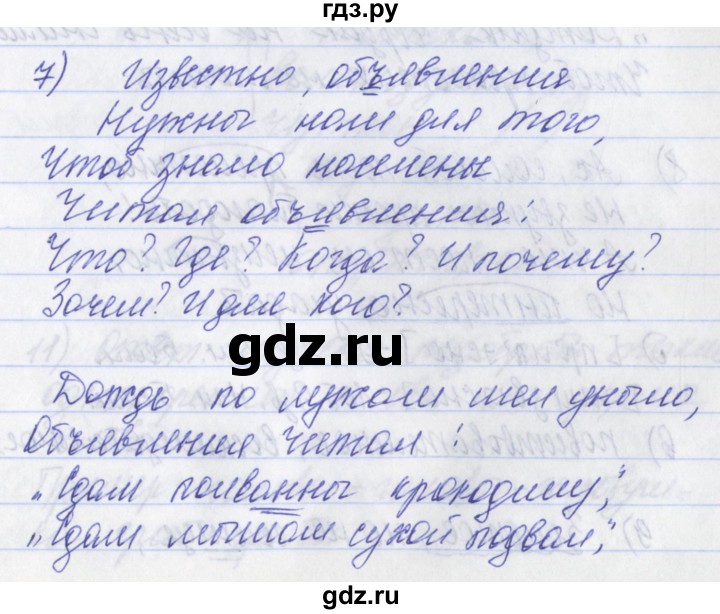 гдз.ру
7) Известно, объявления
Нужны нам для того,
Чтоб знало население
Читая объявления:
Что? Где? Когда? И почему?
Зачем? И для кого?
gdz.ru
Дождь по лужам шел уныло,
Объявления читал:
„Сдам полванны крокодилу",
„Сдам мышам сухой подвал",
gdz.ru